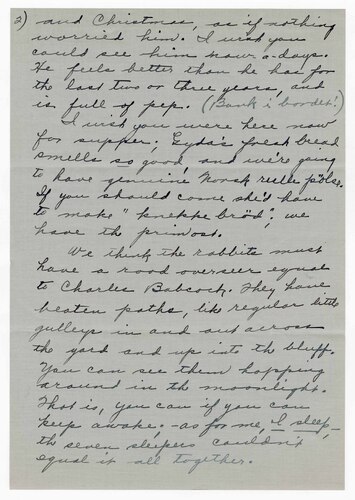 2) and Christmas, as if nothing
worried him. I wish you
could see him now-a-days.
He feels better than he has for
the last two or three years, and
is full of pep. (Bank i bordet!)
I wish you were here now
for supper; Gyda's fresh bread
smells so good and we're going
to have genuine Norsk rulle pölse.
If you should come she'd have
to make "knekke bröd", we
have the primost.
We think the rabbits must
have a road overseer equal
to Charles Babcock. They have
beaten paths, like regular little
gulleys in and out across
the yard and up into the bluff.
You can see them hopping
around in th moonlight.
That is, you can if you can
keep awake. - as for me, I sleep, -
th seven sleepers couldn't
equal it all together.